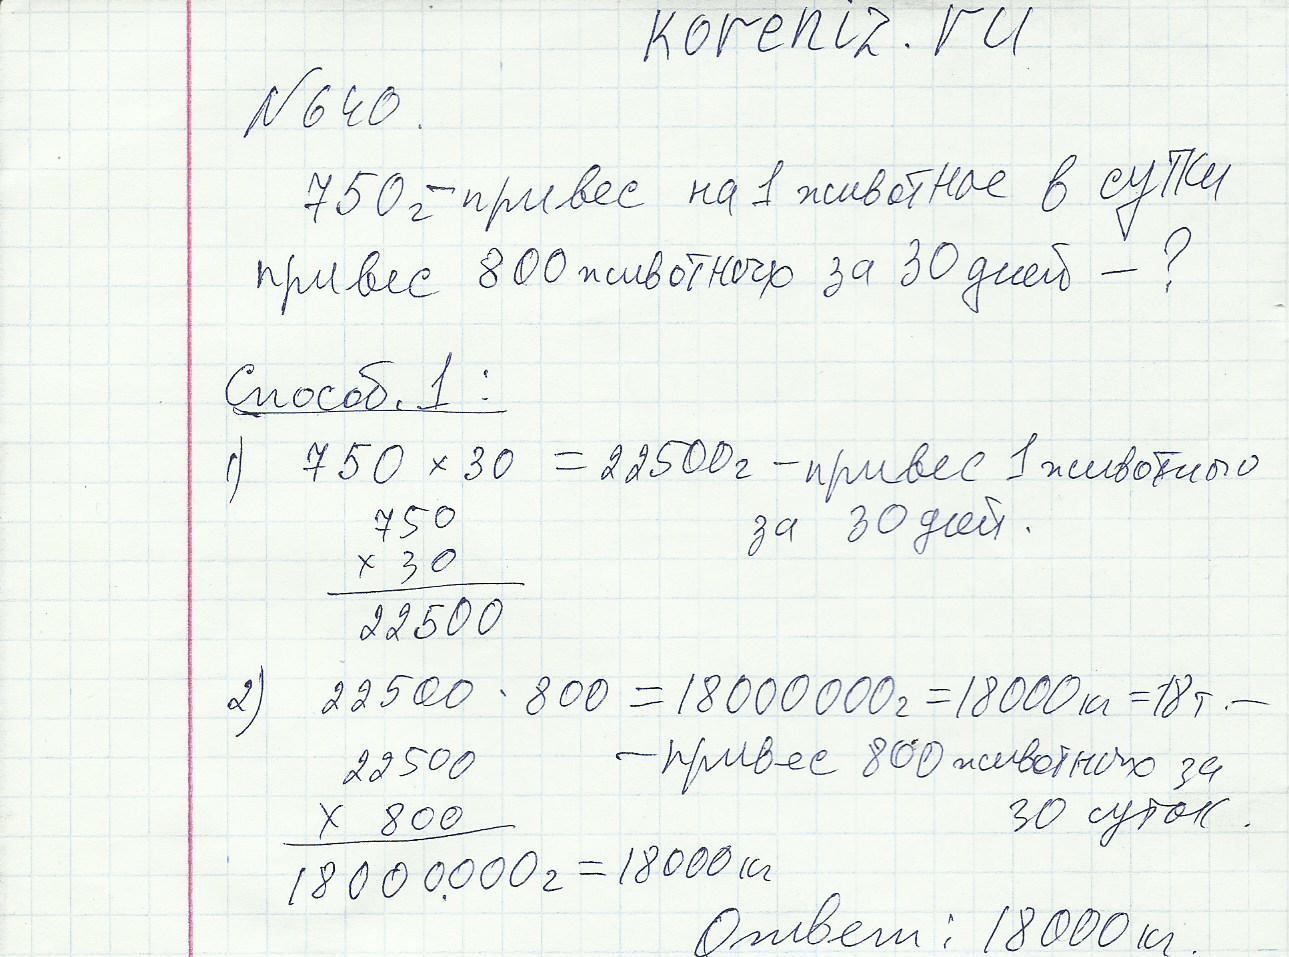 koreniz.ru
N 640.
750г - привес на 1 животное в сутки
привес 800 животных за 30 дней - ?
Способ. 1 :
1) 750 × 30 = 22500г - привес 1 животного
за 30 дней.
750
× 30
22500
2) 22500 · 800 = 18000000г = 18000кг = 18т. -
- привес 800 животных за
30 суток.
22500
× 800
18000000г = 18000 кг
Ответ: 18000 кг.